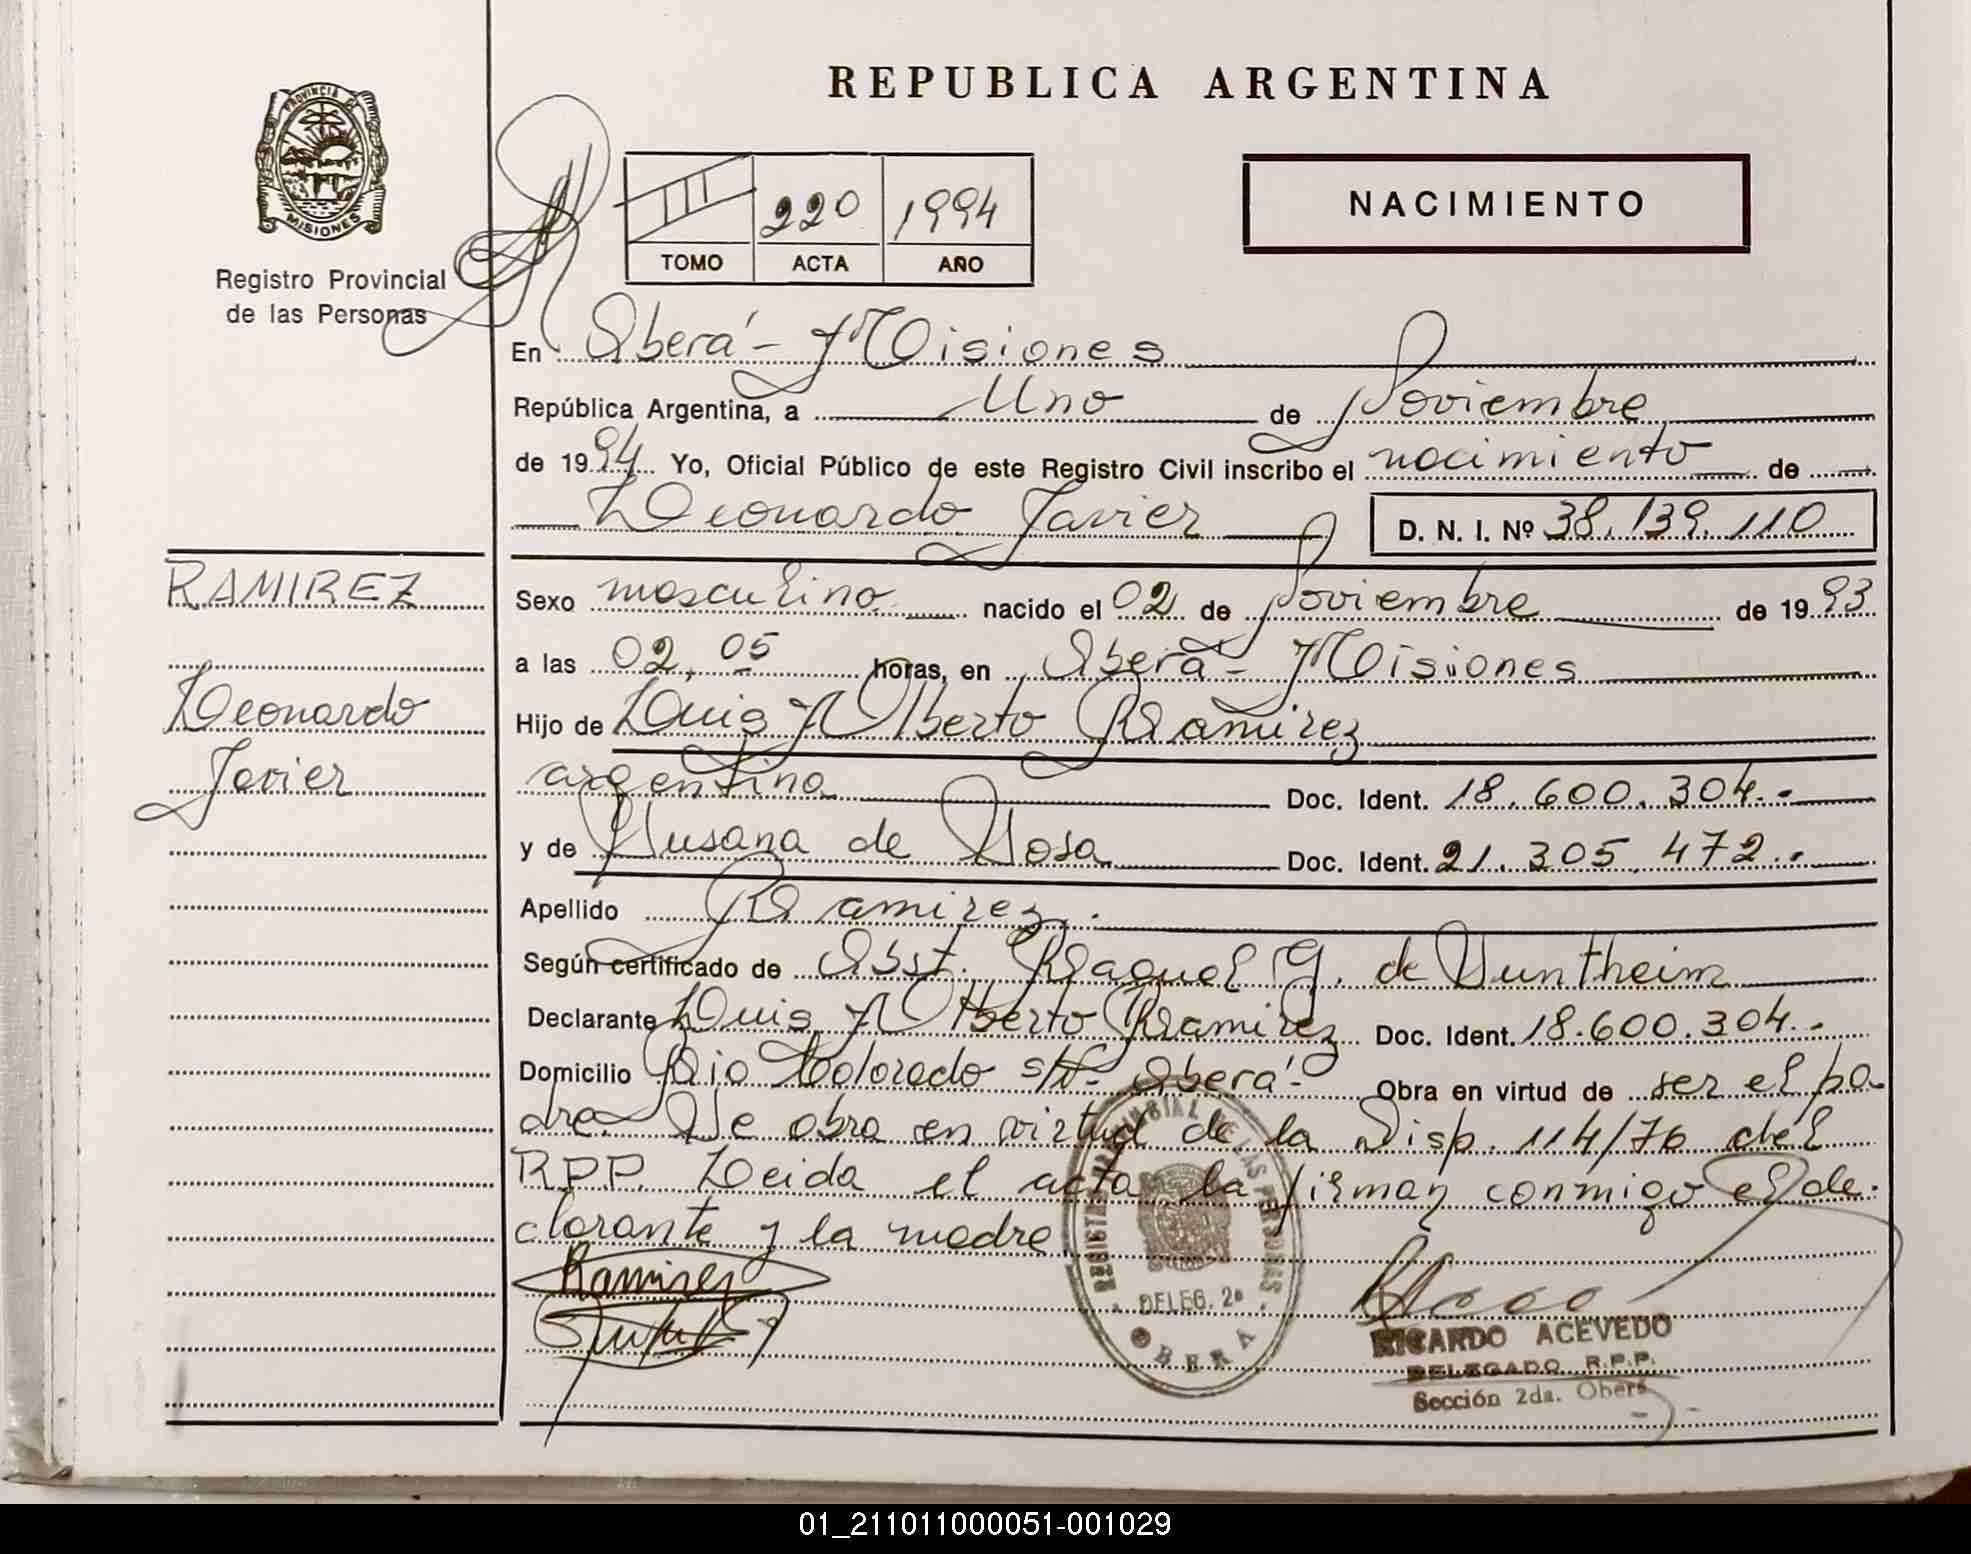 REPUBLICA ARGENTINA
PROVINCIA DE
MISIONES
Registro Provincial
de las Personas
III 220 1994
TOMO ACTA AÑO
NACIMIENTO
En Oberá - Misiones
República Argentina, a Uno de Noviembre
de 1994 Yo, Oficial Público de este Registro Civil inscribo el nacimiento de
Leonardo Javier D. N. I. Nº 38.139.110
RAMIREZ
Leonardo
Javier
Sexo masculino nacido el 02 de Noviembre de 1993
a las 02,05 horas, en Oberá - Misiones
Hijo de Luis Alberto Ramirez
argentino Doc. Ident. 18.600.304.-
y de Susana de Sosa Doc. Ident. 21.305.472.-
Apellido Ramirez.
Según certificado de Obst. Raquel G. de Suntheim
Declarante Luis Alberto Ramirez Doc. Ident. 18.600.304.-
Domicilio Rio Colorado s/Nº Oberá- Obra en virtud de ser el pa
dre. Se obra en virtud de la Disp. 114/76 del
R.P.P. Leida el acta la firman conmigo el de-
clarante y la madre
Ramirez
REGISTRO PROVINCIAL DE LAS PERSONAS
DELEG. 2a
OBERA
RICARDO ACEVEDO
DELEGADO R.P.P.
Sección 2da. Oberá
01_211011000051-001029